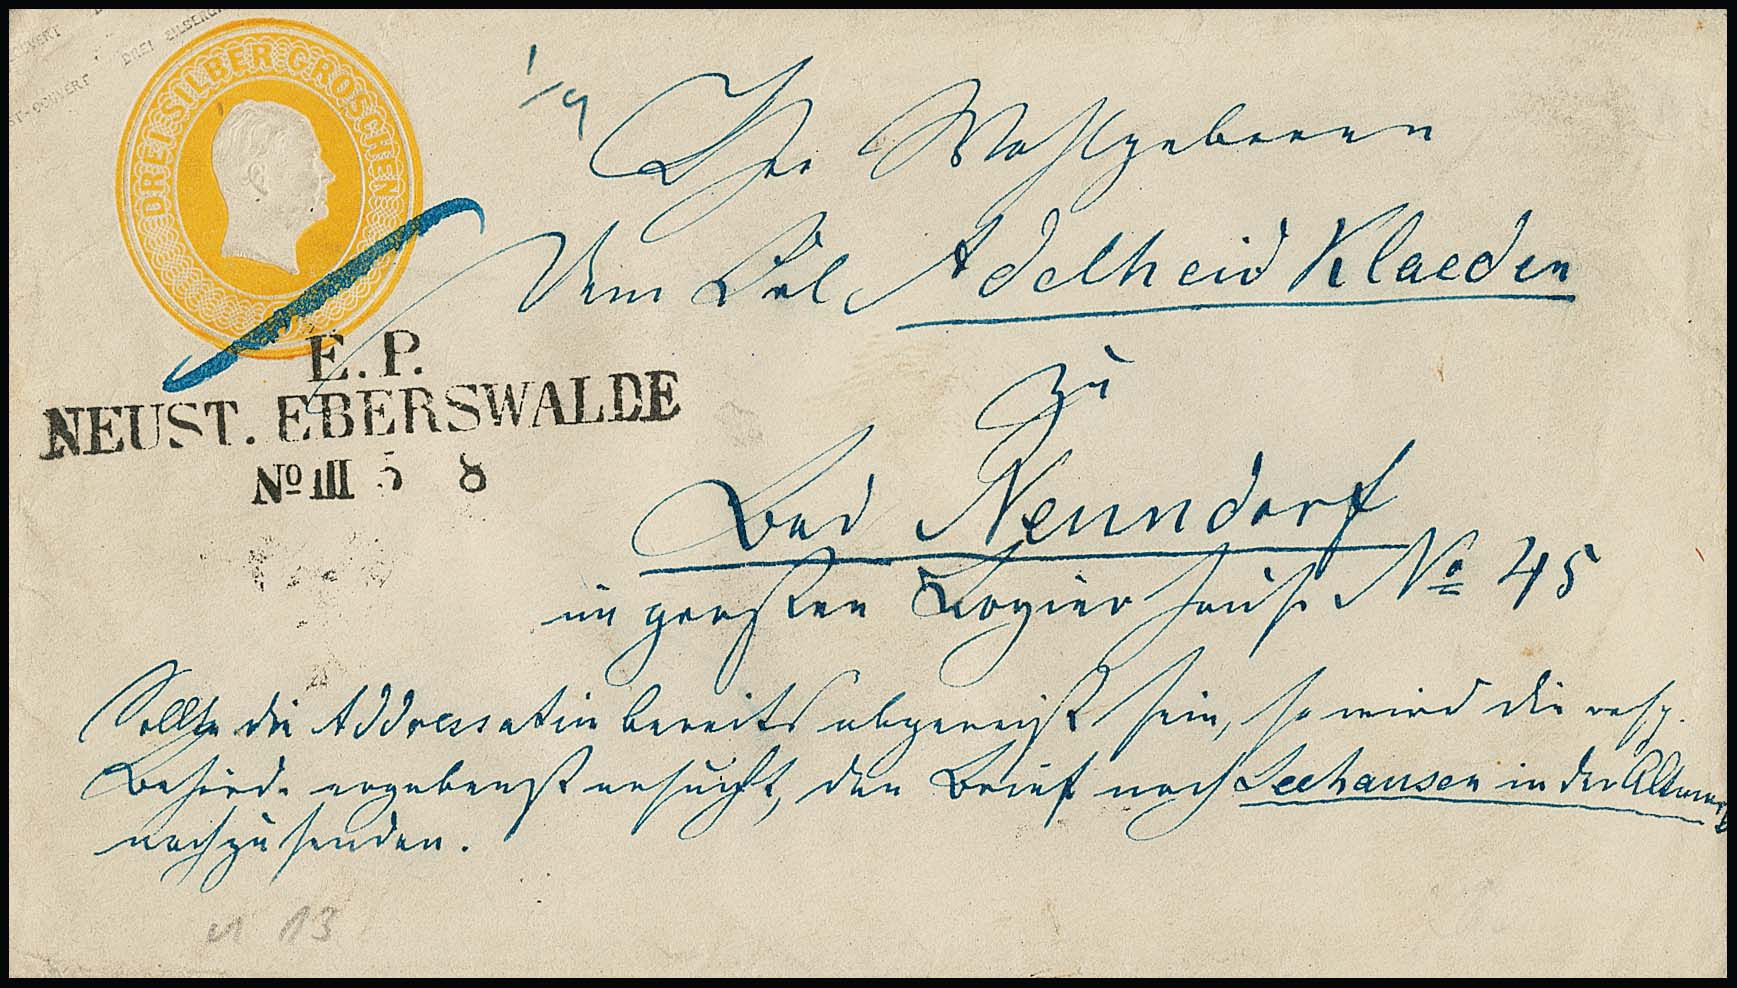 POST-COUVERT DREI SILBERGR
DREI SILBER GROSCHEN
Ihro Wohlgeboren
Dem Frl Adelheid Klaeden
zu
Bad Nenndorf
im großen Logier Hause No 45
Sollte die Addressatin bereits abgereist sein, so wird die resp.
Behörde ergebenst ersucht, den Brief nach Seehausen in der Altmark
nachzusenden.
E. P.
NEUST. EBERSWALDE
No III 5 8
13